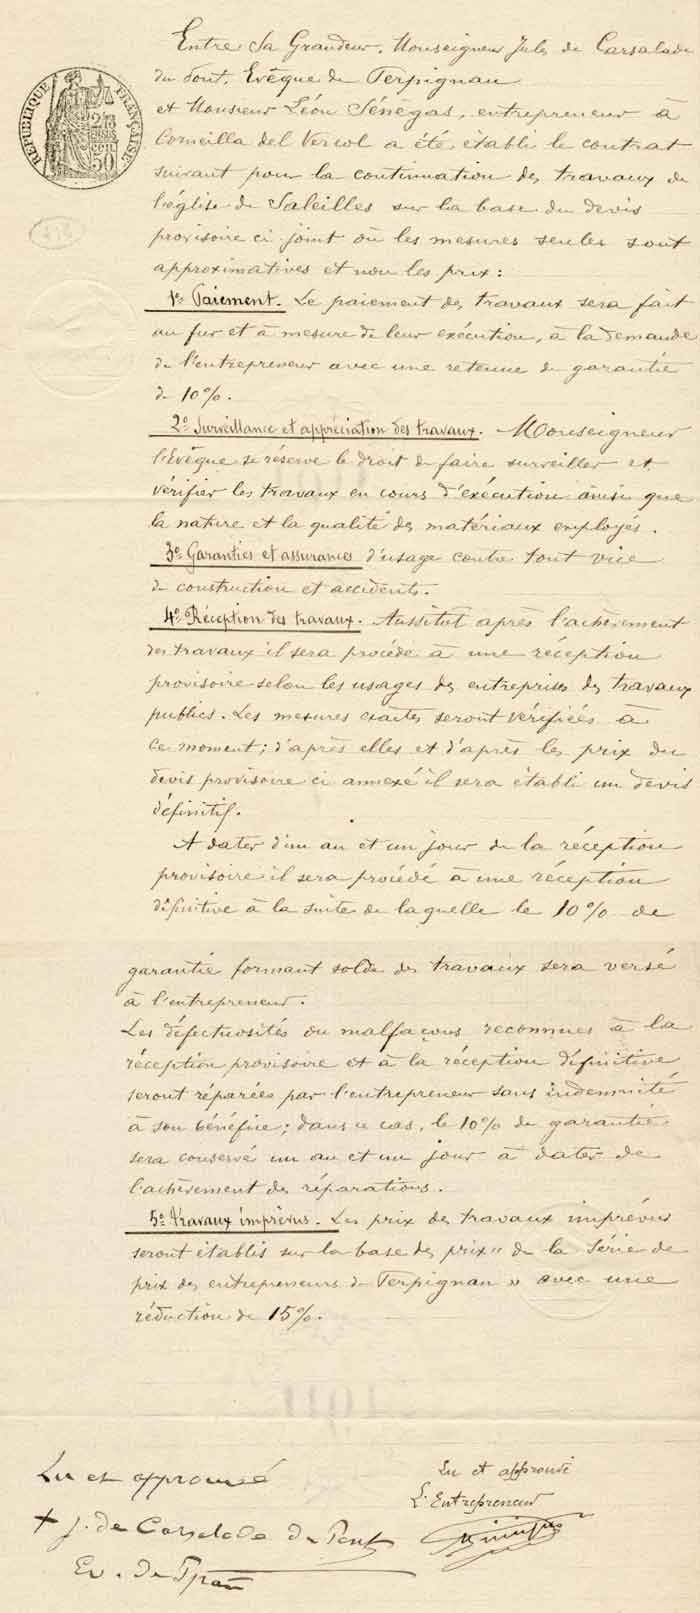 Entre Sa Grandeur, Monseigneur Jules de Carsalade
du Pont, Evêque de Perpignan
et Monsieur Léon Sénégas, entrepreneur à
Corneilla del Vercol a été établi le contrat
suivant pour la continuation des travaux de
l'église de Saleilles sur la base du devis
provisoire ci joint où les mesures seules sont
approximatives et non les prix :
1º Paiement. Le paiement des travaux sera fait
au fur et à mesure de leur exécution, à la demande
de l'entrepreneur avec une retenue de garantie
de 10%.
2º Surveillance et appréciation des travaux. Monseigneur
l'Evêque se réserve le droit de faire surveiller et
vérifier les travaux en cours d'exécution ainsi que
la nature et la qualité des matériaux employés.
3º Garanties et assurances d'usage contre tout vice
de construction et accidents.
4º Réception des travaux. Aussitôt après l'achèvement
des travaux il sera procédé à une réception
provisoire selon les usages des entreprises des travaux
publics. Les mesures exactes seront vérifiées à
ce moment ; d'après elles et d'après les prix du
devis provisoire ci annexé il sera établi un devis
définitif.
A dater d'un an et un jour de la réception
provisoire il sera procédé à une réception
définitive à la suite de laquelle le 10% de
garantie formant solde des travaux sera versé
à l'entrepreneur.
Les défectuosités ou malfaçons reconnues à la
réception provisoire et à la réception définitive
seront réparées par l'entrepreneur sans indemnité
à son bénéfice ; dans ce cas, le 10% de garantie
sera conservé un an et un jour à dater de
l'achèvement des réparations.
5º Travaux imprévus. Les prix des travaux imprévus
seront établis sur la base des prix " de la Série de
prix des entrepreneurs de Perpignan " avec une
réduction de 15%.
Lu et approuvé
+ J. de Carsalade du Pont
Ev. de Perpan
Lu et approuvé
L'Entrepreneur
Sénégas
RÉPUBLIQUE FRANÇAISE
50